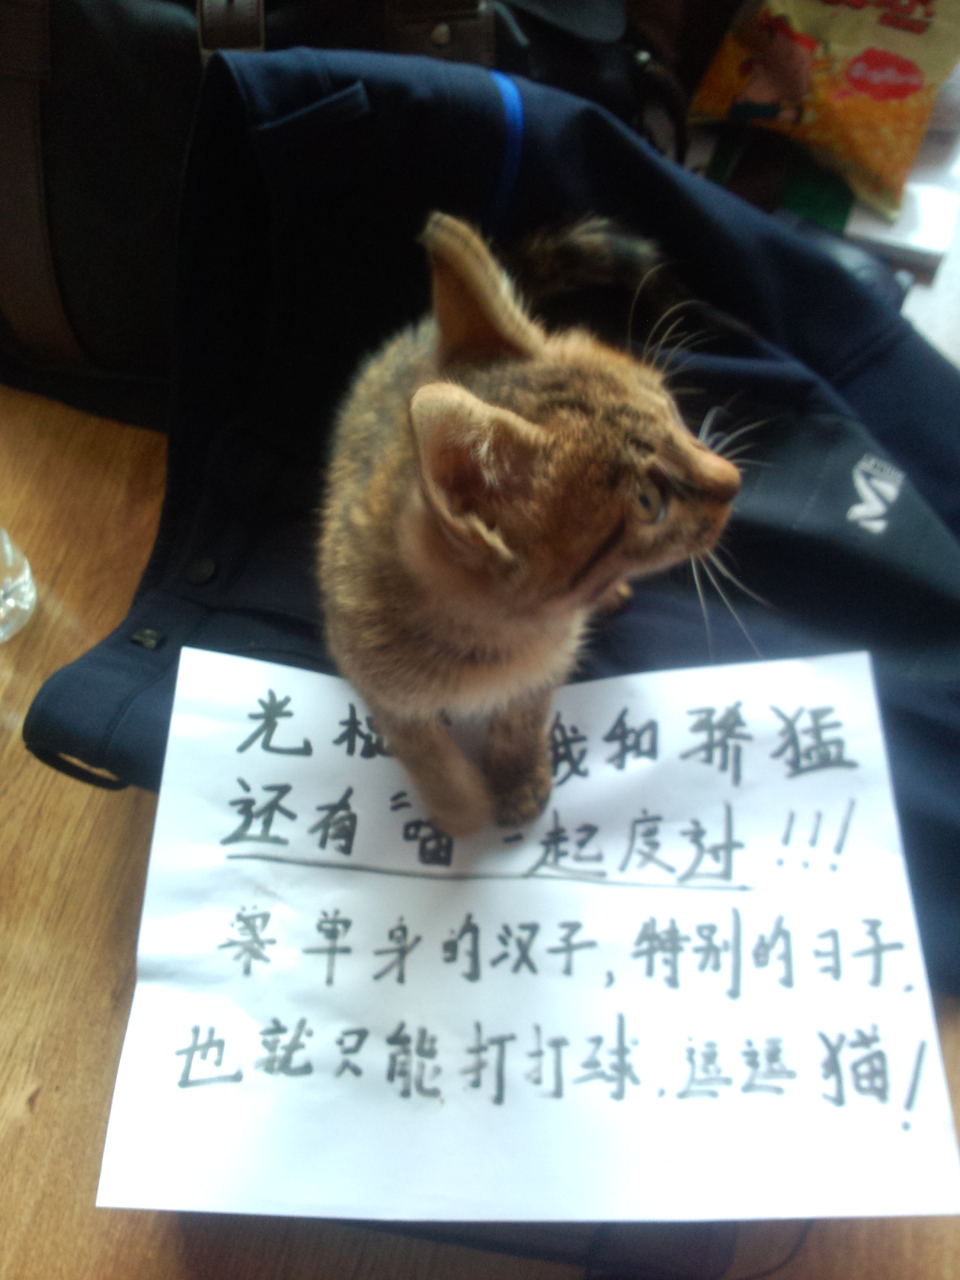 光棍 我和骄猛
还有"喵"一起度过!!!
单身的汉子,特别的日子.
也就只能打打球.逗逗猫!